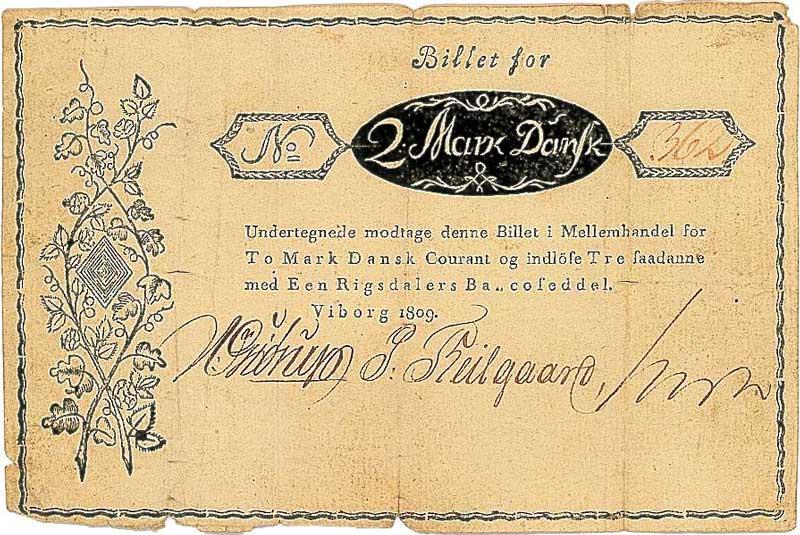 Billet for
No 2. Mark Dansk 362
Undertegnede modtage denne Billet i Mellemhandel for
To Mark Dansk Courant og indlöse Tre saadanne
med Een Rigsdalers Bancoseddel.
Viborg 1809.
P. Feilgaard,